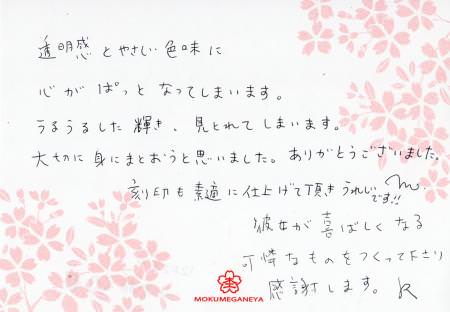 透明感とやさしい色味に
心がぱっとなってしまいます。
うるうるした輝き、見とれてしまいます。
大切に身にまとおうと思いました。ありがとうございました。
刻印も素適に仕上げて頂きうれしいです!! m.
彼女が喜ばしくなる
可憐なものをつくって下さり
感謝します。 K
MOKUMEGANEYA